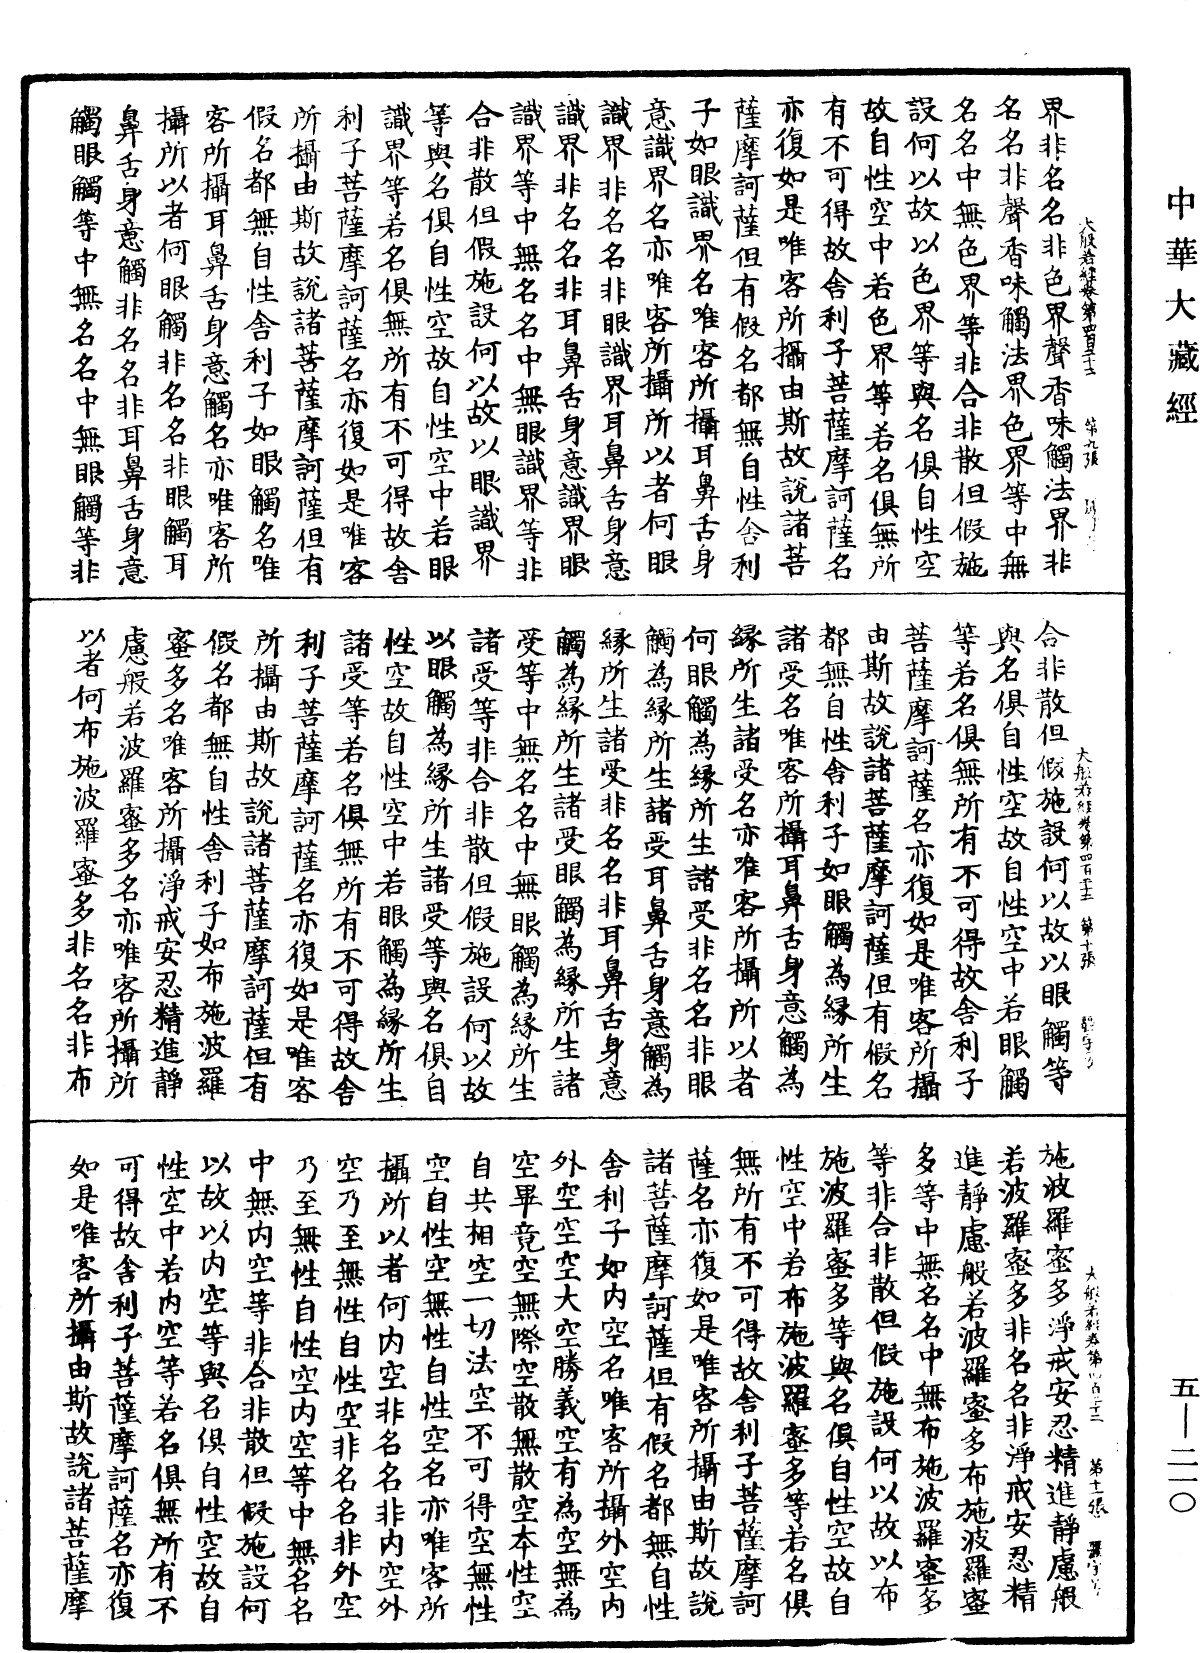 中華大藏經
界非名名非色界聲香味觸法界非
名名非聲香味觸法界色界等中無
名名中無色界等非合非散但假施
設何以故以色界等與名俱自性空
故自性空中若色界等若名俱無所
有不可得故舍利子菩薩摩訶薩名
亦復如是唯客所攝由斯故說諸菩
薩摩訶薩但有假名都無自性舍利
子如眼識界名唯客所攝耳鼻舌身
意識界名亦唯客所攝所以者何眼
識界非名名非眼識界耳鼻舌身意
識界非名名非耳鼻舌身意識界眼
識界等中無名名中無眼識界等非
合非散但假施設何以故以眼識界
等與名俱自性空故自性空中若眼
識界等若名俱無所有不可得故舍
利子菩薩摩訶薩名亦復如是唯客
所攝由斯故說諸菩薩摩訶薩但有
假名都無自性舍利子如眼觸名唯
客所攝耳鼻舌身意觸名亦唯客所
攝所以者何眼觸非名名非眼觸耳
鼻舌身意觸非名名非耳鼻舌身意
觸眼觸等中無名名中無眼觸等非
大般若經卷第四百三十三 第十張
合非散但假施設何以故以眼觸等
與名俱自性空故自性空中若眼觸
等若名俱無所有不可得故舍利子
菩薩摩訶薩名亦復如是唯客所攝
由斯故說諸菩薩摩訶薩但有假名
都無自性舍利子如眼觸為緣所生
諸受名唯客所攝耳鼻舌身意觸為
緣所生諸受名亦唯客所攝所以者
何眼觸為緣所生諸受非名名非眼
觸為緣所生諸受耳鼻舌身意觸為
緣所生諸受非名名非耳鼻舌身意
觸為緣所生諸受眼觸為緣所生諸
受等中無名名中無眼觸為緣所生
諸受等非合非散但假施設何以故
以眼觸為緣所生諸受等與名俱自
性空故自性空中若眼觸為緣所生
諸受等若名俱無所有不可得故舍
利子菩薩摩訶薩名亦復如是唯客
所攝由斯故說諸菩薩摩訶薩但有
假名都無自性舍利子如布施波羅
蜜多名唯客所攝淨戒安忍精進靜
慮般若波羅蜜多名亦唯客所攝所
以者何布施波羅蜜多非名名非布
施波羅蜜多淨戒安忍精進靜慮般
若波羅蜜多非名名非淨戒安忍精
進靜慮般若波羅蜜多布施波羅蜜
多等中無名名中無布施波羅蜜多
等非合非散但假施設何以故以布
施波羅蜜多等與名俱自性空故自
性空中若布施波羅蜜多等若名俱
無所有不可得故舍利子菩薩摩訶
薩名亦復如是唯客所攝由斯故說
諸菩薩摩訶薩但有假名都無自性
舍利子如內空名唯客所攝外空內
外空空空大空勝義空有為空無為
空畢竟空無際空散無散空本性空
自共相空一切法空不可得空無性
空自性空無性自性空名亦唯客所
攝所以者何內空非名名非內空外
空乃至無性自性空非名名非外空
乃至無性自性空內空等中無名名
中無內空等非合非散但假施設何
以故以內空等與名俱自性空故自
性空中若內空等若名俱無所有不
可得故舍利子菩薩摩訶薩名亦復
如是唯客所攝由斯故說諸菩薩摩
五—二一〇